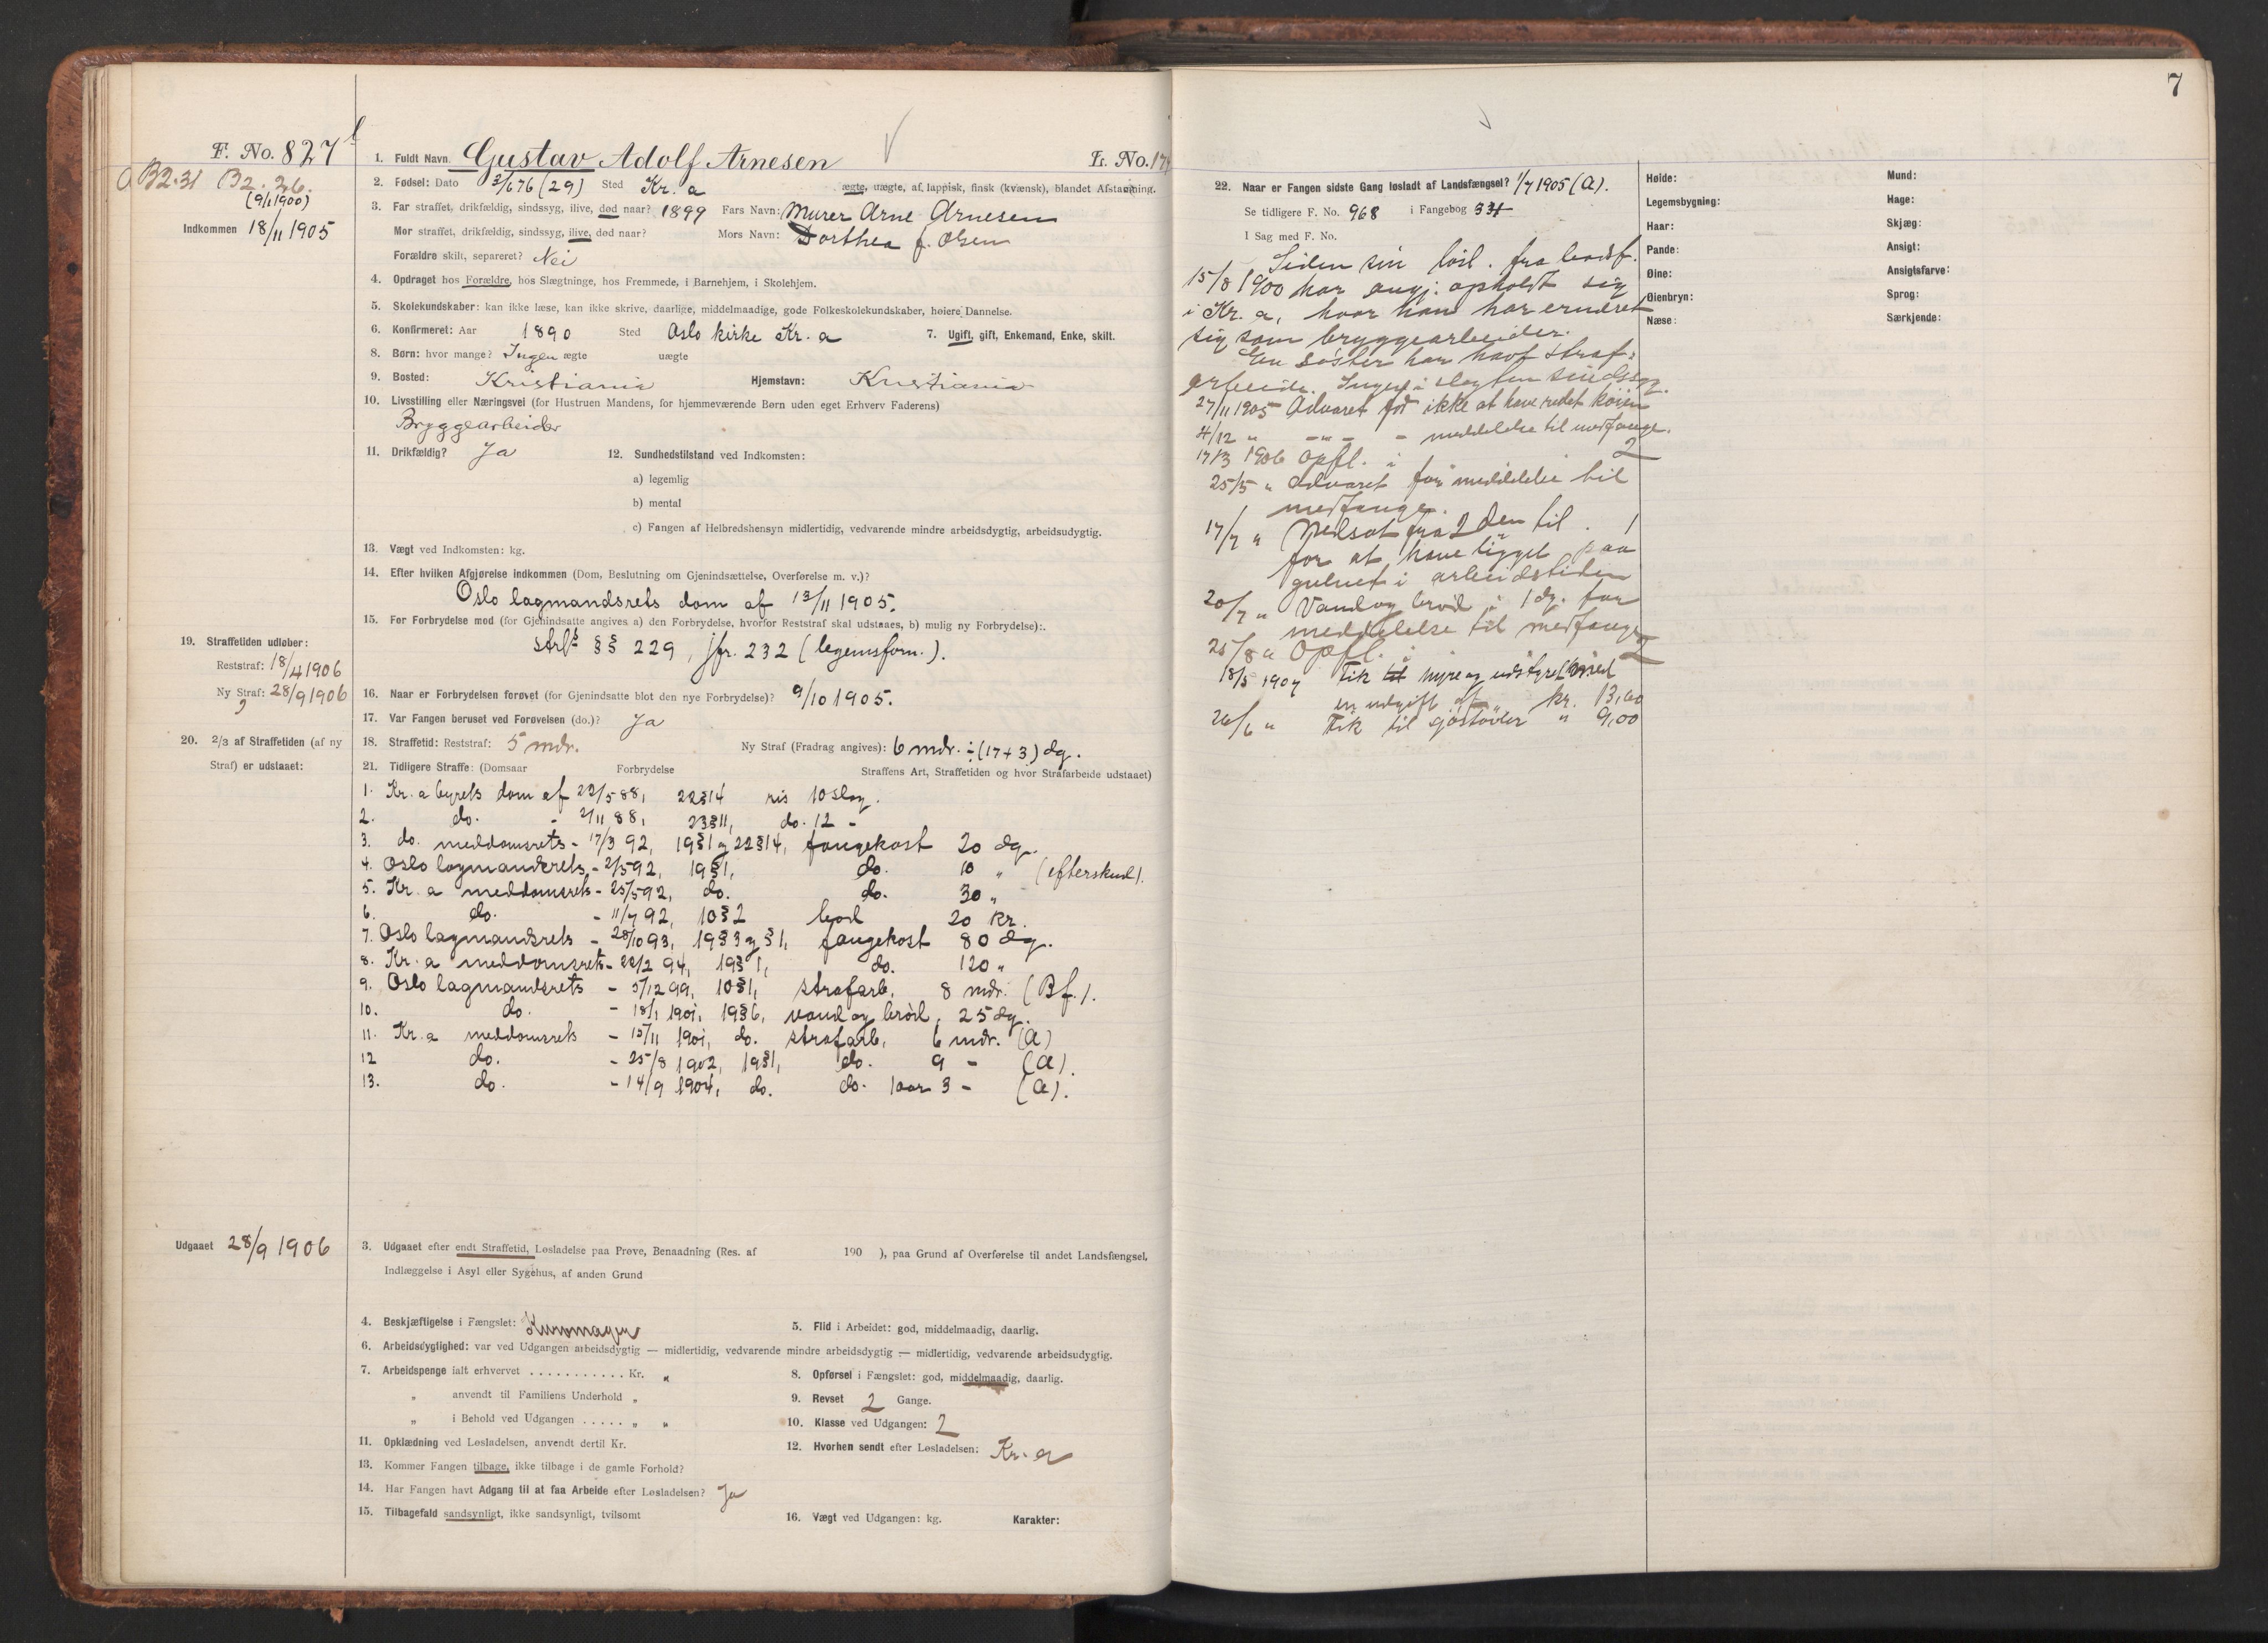 7
F. No. 827
1. Fuldt Navn Gustav Adolf Arnesen
L. No. 17
B2.31 B2.26.
(9/1 1900)
Indkommen 18/11 1905
2. Fødsel: Dato 3/6 76 (29) Sted Kr.a ægte, uægte, af lappisk, finsk (kvænsk), blandet Afstamning.
3. Far straffet, drikfældig, sindssyg, ilive, død naar? 1899 Fars Navn: Murer Arne Arnesen
Mor straffet, drikfældig, sindssyg, ilive, død naar? Mors Navn: Dorthea f. Olsen
Forældre skilt, separeret? Nei
4. Opdraget hos Forældre, hos Slægtninge, hos Fremmede, i Barnehjem, i Skolehjem.
5. Skolekundskaber: kan ikke læse, kan ikke skrive, daarlige, middelmaadige, gode Folkeskolekundskaber, høiere Dannelse.
6. Konfirmeret: Aar 1890 Sted Oslo kirke Kr.a 7. Ugift, gift, Enkemand, Enke, skilt.
8. Børn: hvor mange? Ingen ægte uægte
9. Bosted: Kristiania Hjemstavn: Kristiania
10. Livsstilling eller Næringsvei (for Hustruen Mandens, for hjemmeværende Børn uden eget Erhverv Faderens)
Bryggearbeider
11. Drikfældig? Ja 12. Sundhedstilstand ved Indkomsten:
a) legemlig
b) mental
c) Fangen af Helbredshensyn midlertidig, vedvarende mindre arbeidsdygtig, arbeidsudygtig.
13. Vægt ved Indkomsten: kg.
14. Efter hvilken Afgjørelse indkommen (Dom, Beslutning om Gjenindsættelse, Overførelse m. v.)?
Oslo lagmandsrets dom af 13/11 1905.
15. For Forbrydelse mod (for Gjenindsatte angives a) den Forbrydelse, hvorfor Reststraf skal udstaaes, b) mulig ny Forbrydelse):
strfl. §§ 229, jfr. 232 (legemsforn.).
19. Straffetiden udløber:
Reststraf: 18/4 1906
Ny Straf: 28/9 1906
16. Naar er Forbrydelsen forøvet (for Gjenindsatte blot den nye Forbrydelse)? 9/10 1905.
17. Var Fangen beruset ved Forøvelsen (do.)? Ja
20. 2/3 af Straffetiden (af ny
Straf) er udstaaet:
18. Straffetid: Reststraf: 5 mdr. Ny Straf (Fradrag angives): 6 mdr. ÷ (17+3) dg.
21. Tidligere Straffe: (Domsaar Forbrydelse Straffens Art, Straffetiden og hvor Strafarbeide udstaaet)
1. Kr.a byrets dom af 23/5 88, 22§14 ris 10 slag.
2. do. - 2/11 88, 23§11, do. 12 -
3. do. meddomsrets - 17/3 92, 19§1 og 22§14, fangekost 20 dg.
4. Oslo lagmandsrets - 2/5 92, 19§1, do. 10 " (efterskud).
5. Kr.a meddomsrets - 25/5 92, do. do. 30 "
6. do. - 11/7 92, 10§2 bod 20 kr.
7. Oslo lagmandsrets - 28/10 93, 19§3 og §1, fangekost 80 dg.
8. Kr.a meddomsrets - 22/2 94, 19§1, do. 120 "
9. Oslo lagmandsrets - 5/12 99, 10§1, strafarb. 8 mdr. (Bf.).
10. do. - 18/1 1901, 19§6, vand og brød, 25 dg.
11. Kr.a meddomsrets - 15/11 1901, do. strafarb. 6 mdr. (A)
12 do. - 25/8 1902, 19§1, do. 9 - (A).
13. do. - 14/9 1904, do. do. 1 aar 3 - (A).
Udgaaet 28/9 1906
3. Udgaaet efter endt Straffetid, Løsladelse paa Prøve, Benaadning (Res. af 190 ), paa Grund af Overførelse til andet Landsfængsel,
Indlæggelse i Asyl eller Sygehus, af anden Grund
4. Beskjæftigelse i Fængslet: 5. Flid i Arbeidet: god, middelmaadig, daarlig.
6. Arbeidsdygtighed: var ved Udgangen arbeidsdygtig — midlertidig, vedvarende mindre arbeidsdygtig — midlertidig, vedvarende arbeidsudygtig.
7. Arbeidspenge ialt erhvervet . . . . . . . . . . . Kr. " 8. Opførsel i Fængslet: god, middelmaadig, daarlig.
" anvendt til Familiens Underhold " 9. Revset 2 Gange.
" i Behold ved Udgangen . . . . . " " 10. Klasse ved Udgangen: 2
11. Opklædning ved Løsladelsen, anvendt dertil Kr. 12. Hvorhen sendt efter Løsladelsen: Kr.a
13. Kommer Fangen tilbage, ikke tilbage i de gamle Forhold?
14. Har Fangen havt Adgang til at faa Arbeide efter Løsladelsen? Ja
15. Tilbagefald sandsynligt, ikke sandsynligt, tvilsomt 16. Vægt ved Udgangen: kg. Karakter:
22. Naar er Fangen sidste Gang løsladt af Landsfængsel? 1/7 1905 (A).
Se tidligere F. No. 968 i Fangebog 34
I Sag med F. No.
Siden sin løsl. fra bodsf.
15/8 1900 har angj. opholdt sig
i Kr.a, hvor han har ernæret
sig som bryggearbeider.
En søster har havt straf-
arbeide. Ingen i slegten sindssyg.
27/11 1905 Advaret for ikke at have redet køien
4/12 " - " - - meddelelse til medfange.
17/3 1906 Opfl. i 2
25/5 " Advaret for meddelelse til
medfange.
17/7 " Nedsat fra 2den til 1
for at have ligget paa
gulvet i arbeidstiden
20/7 " Vand og brød i 1 dg. for
meddelelse til medfange
25/8 " Opfl. i 2
18/5 1907 Fik hyre og udstyret med
en udgift af kr. 13,60
26/6 " Fik til sjøstøvler " 9,00
Høide:
Legemsbygning:
Haar:
Pande:
Øine:
Øienbryn:
Næse:
Mund:
Hage:
Skjæg:
Ansigt:
Ansigtsfarve:
Sprog:
Særkjende: